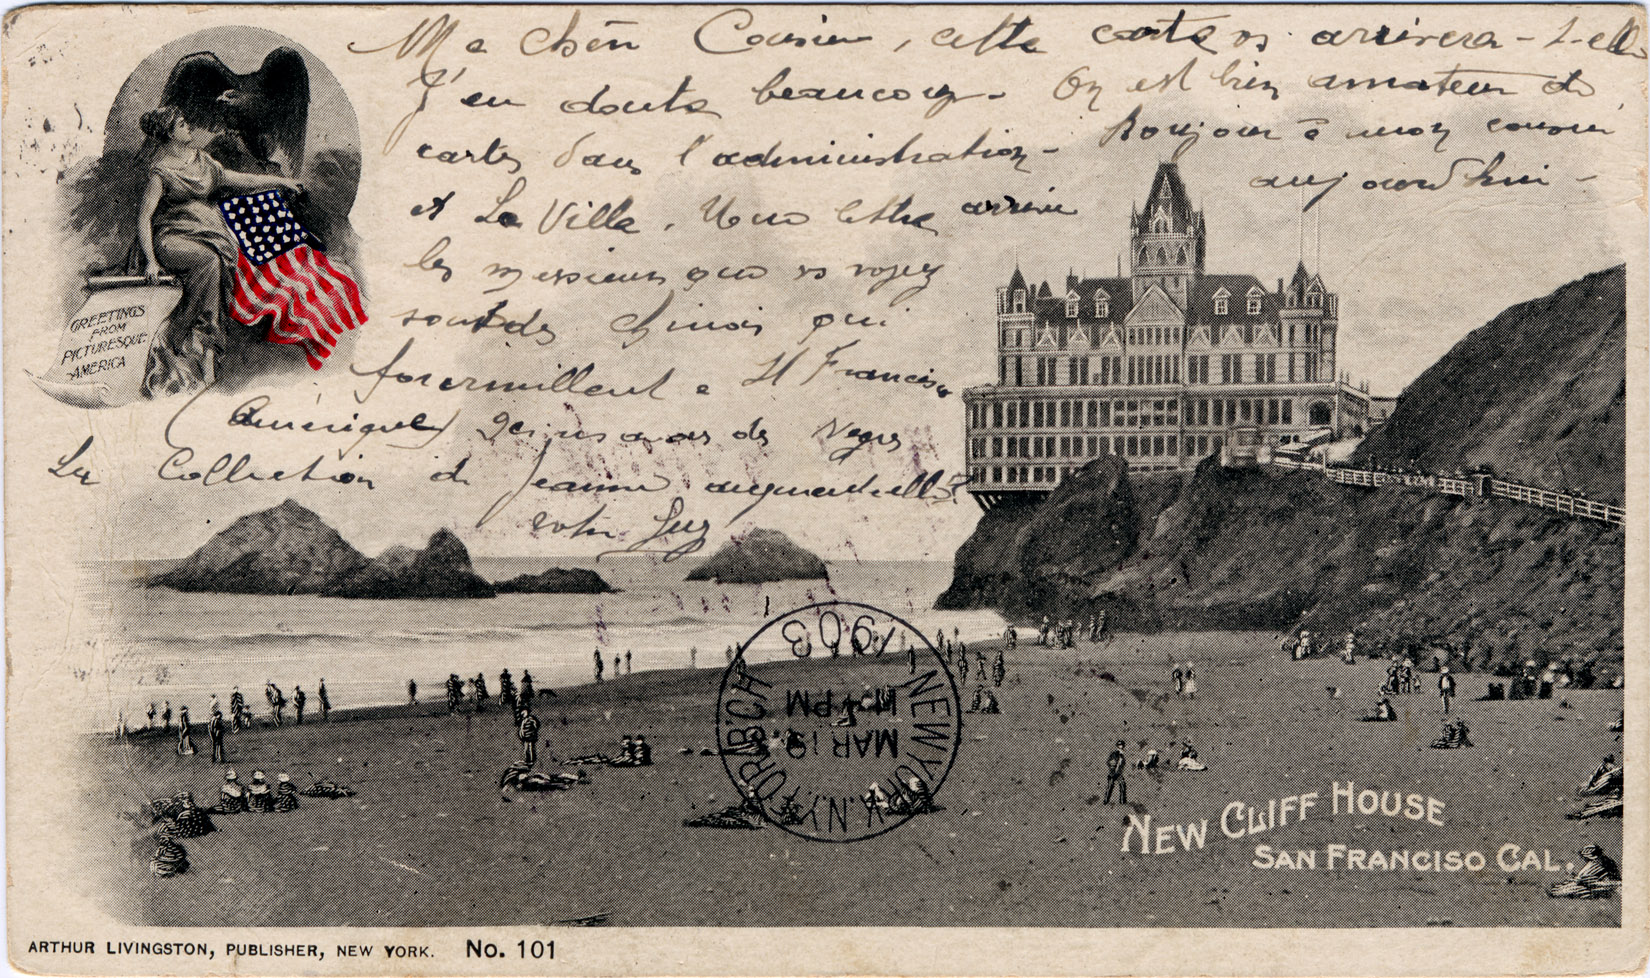 Ma chère Cousine, cette carte vs arrivera-t-elle
J'en doute beaucoup - On est bien amateur de
cartes dans l'administration - Bonjour à mon cousin
aujourd'hui -
et La Ville. Une lettre arrive
les messieurs que vs voyez
sont des chinois qui
fourmillent à St Francisco
(Amérique) des
La Collection de Jeanne augmente-t-elle?
GREETINGS
FROM
PICTURESQUE
AMERICA
NEW YORK, N.Y.
FOR'BCH
MAR 19
PM
1903
NEW CLIFF HOUSE
SAN FRANCISO CAL.
ARTHUR LIVINGSTON, PUBLISHER, NEW YORK. No. 101